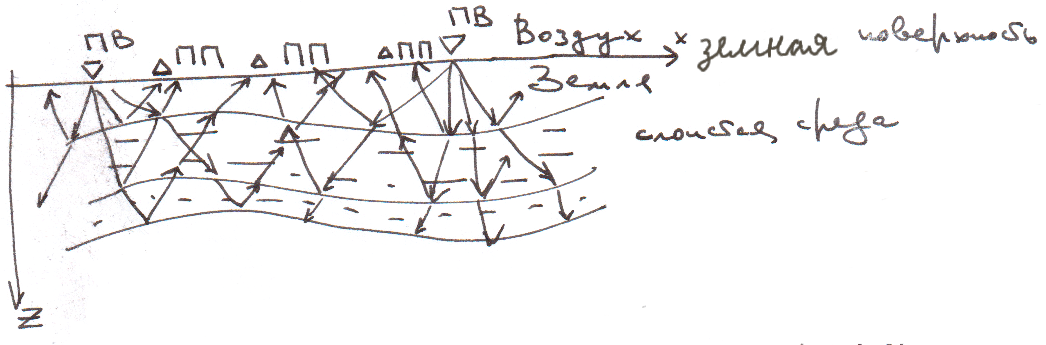 ПВ ПП ПП ПП ПВ Воздух x земная поверхность
Земля
слоистая среда
z